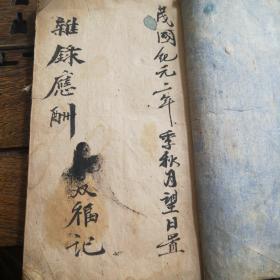 民國紀元二年季秋月望日置
雜錄應酬
双福記